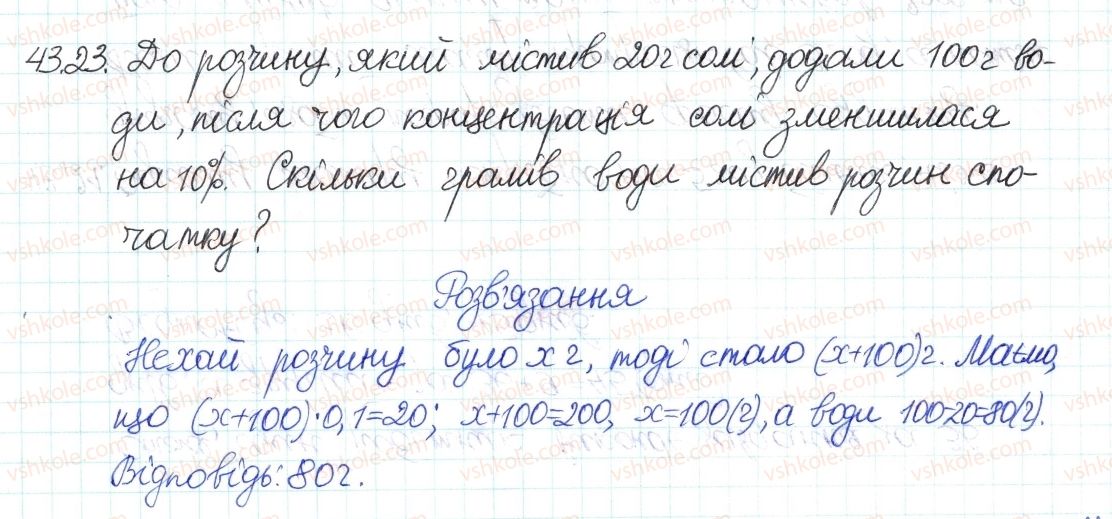 43.23. До розчину, який містив 20г солі, додали 100г во-
ди, після чого концентрація солі зменшилася
на 10%. Скільки грамів води містив розчин спо-
чатку?
Розв'язання
Нехай розчину було x г, тоді стало (x+100)г. Маємо,
що (x+100)·0,1=20; x+100=200, x=100(г), а води 100-20=80(г).
Відповідь: 80г.